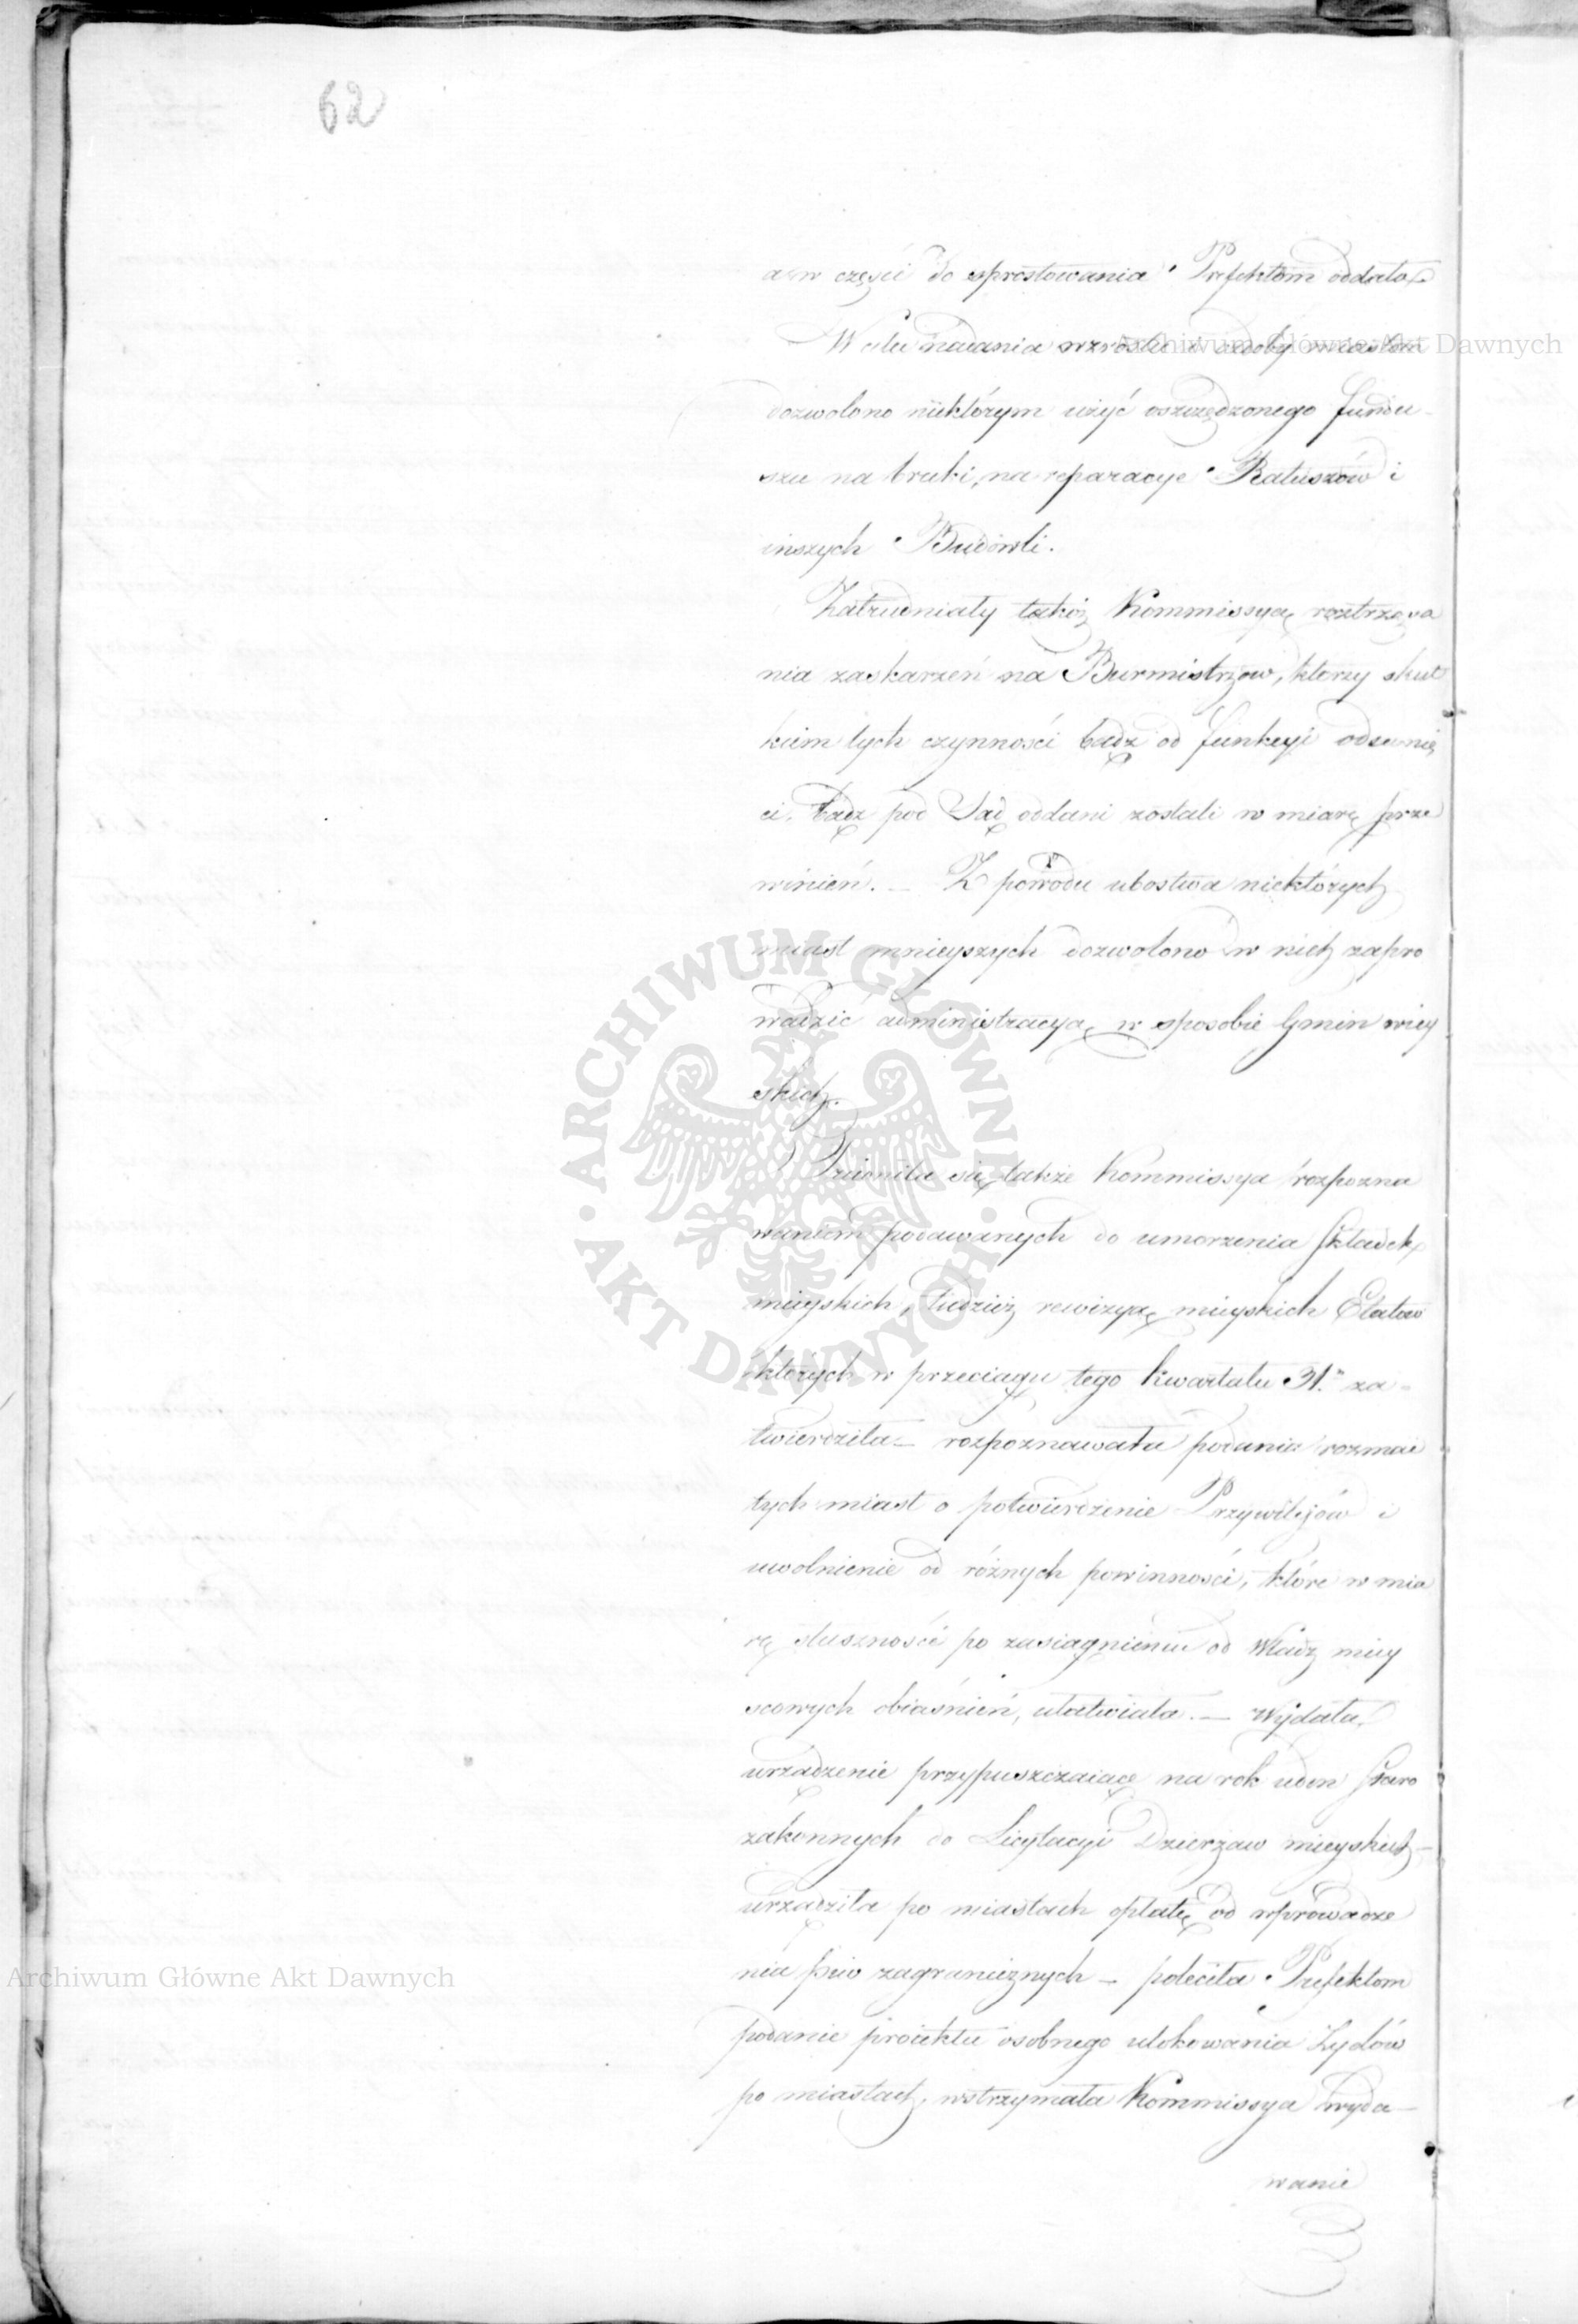 62
a w części do sprostowania Prefektom oddała
W celu nadania wzrostu i ozdoby miastom
dozwolono niektórym użyć oszczędzonego fundu-
szu na bruki, na reparacye Ratuszów i
inszych Budowli.
Zatrudniały takóż Kommissyą roztrząsa
nia zaskarżeń na Burmistrzow, ktorzy skut
kiem tych czynności bądź od funkcyi odsunię
ci, bądź pod Sąd oddani zostali w miarę prze
winień. — Z powodu ubostwa niektórych
miast mnieyszych dozwolono w nich zapro
wadzić administracyą w sposobie Gmin wiey
skich.
Trudniła się także Kommissya rozpozna
waniem podawanych do umorzenia składek
mieyskich, tudzież rewizyą mieyskich Etatow
których w przeciągu tego kwartału 31. za-
twierdziła — rozpoznawała podania rozmai
tych miast o potwierdzenie Przywilejów i
uwolnienie od różnych powinności, które w mia
rę słuszności po zasiągnieniu od Władz miey
scowych obiaśnień, ułatwiała. — Wydała
urządzenie przypuszczaiące na rok ieden Staro
zakonnych do Licytacyi Dzierzaw mieyskich —
urządziła po miastach opłatę od wprowadze
nia piw zagranicznych — poleciła Prefektom
podanie proiektu osobnego ulokowania Zydów
po miastach, wstrzymała Kommissya wyda-
wanie
Archiwum Główne Akt Dawnych
Archiwum Główne Akt Dawnych
ARCHIWUM GŁÓWNE · AKT DAWNYCH ·